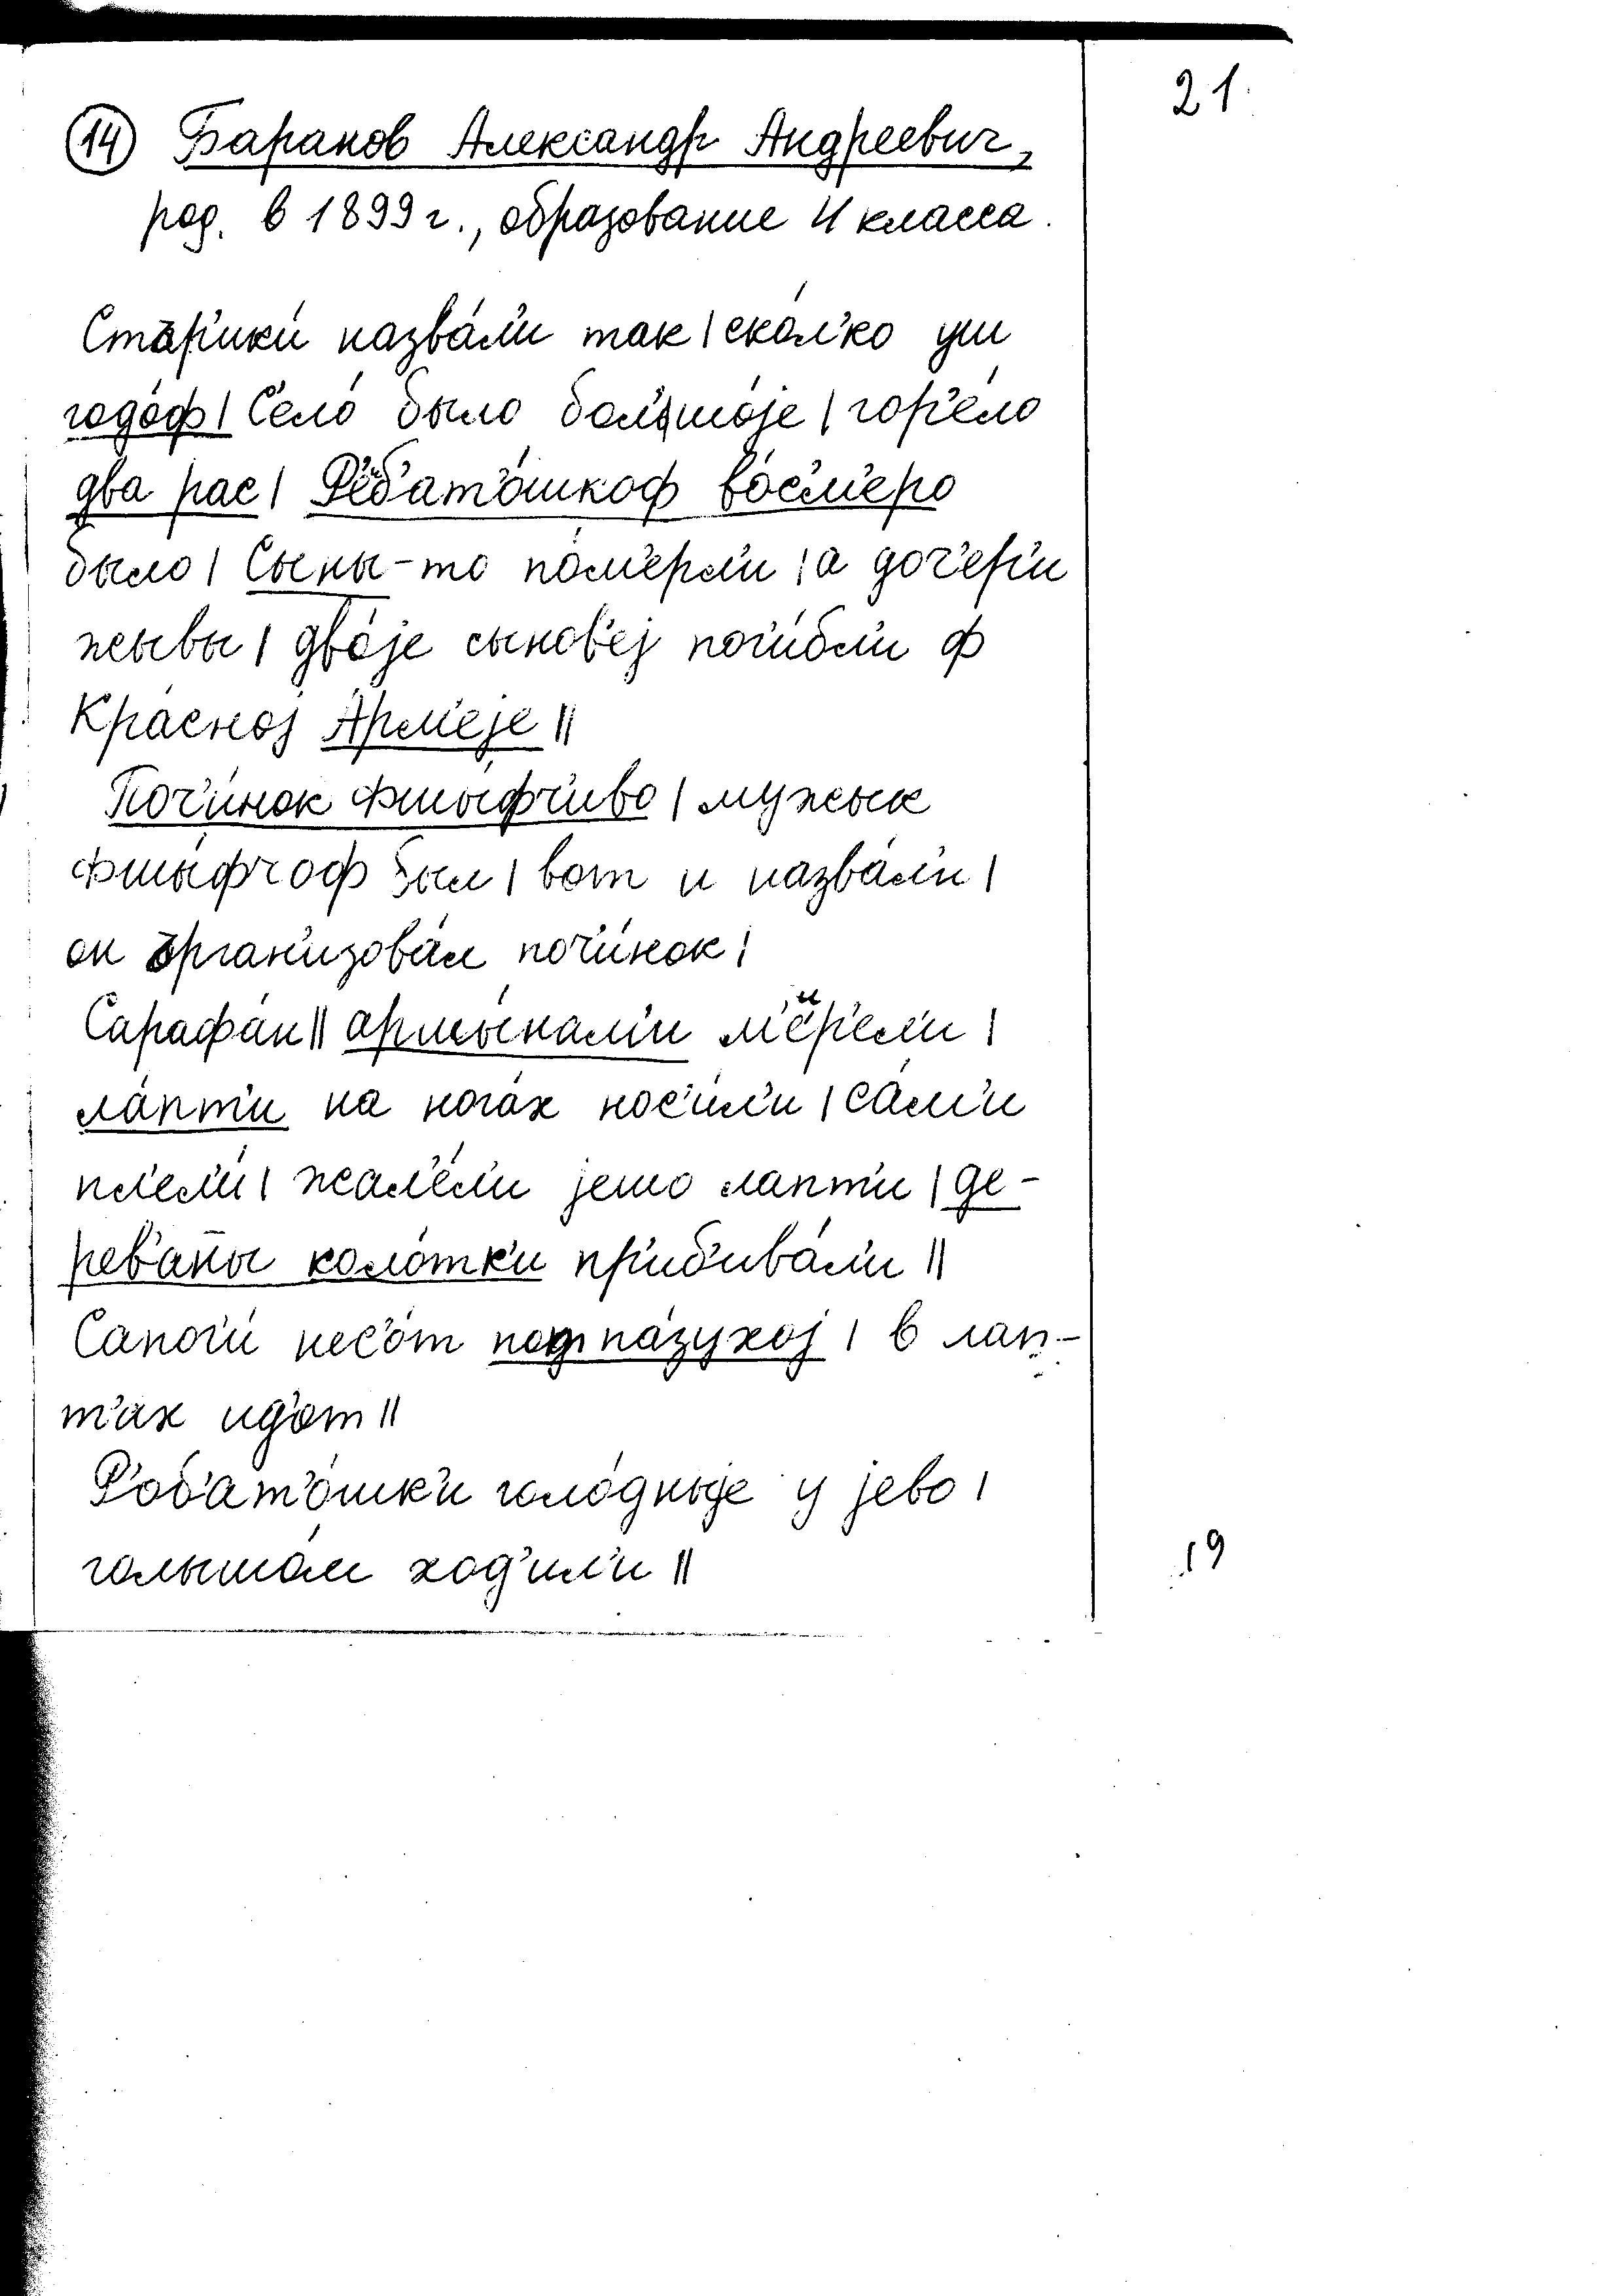 21.
14 Баранов Александр Андреевич,
род. в 1899 г., образование 4 класса.
Стар'ики́ назва́л'и так | ско́л'ко уш
годо́ф | С'ело́ было бол'шо́jе | гор'е́ло
два рас | Р'еб'ат'о́шкоф во́с'м'еро
было | Сыны-то по́м'ерл'и | а доч'ер'и
жывы | дво́jе сынов'еj поги́бл'и ф
Кра́сноj А́рм'еjе ||
Поч'и́нок Фшы́фч'иво | мужык
Фшы́фчоф был | вот и назва́л'и |
он организова́л поч'и́нок |
Сарафа́н || аршы́нам'и м'е́р'ел'и |
ла́пт'и на нога́х нос'и́л'и | са́м'и
пл'ел'и́ | жал'е́л'и jешо лапт'и | де-
рев'аны коло́тк'и пр'иб'ива́л'и ||
Сапог'и́ нес'о́т подпа́зухоj | в лап-
т'ах ид'о́т ||
Р'об'ат'о́шк'и голо́дныjе у jево |
голышо́м ход'ил'и ||
19